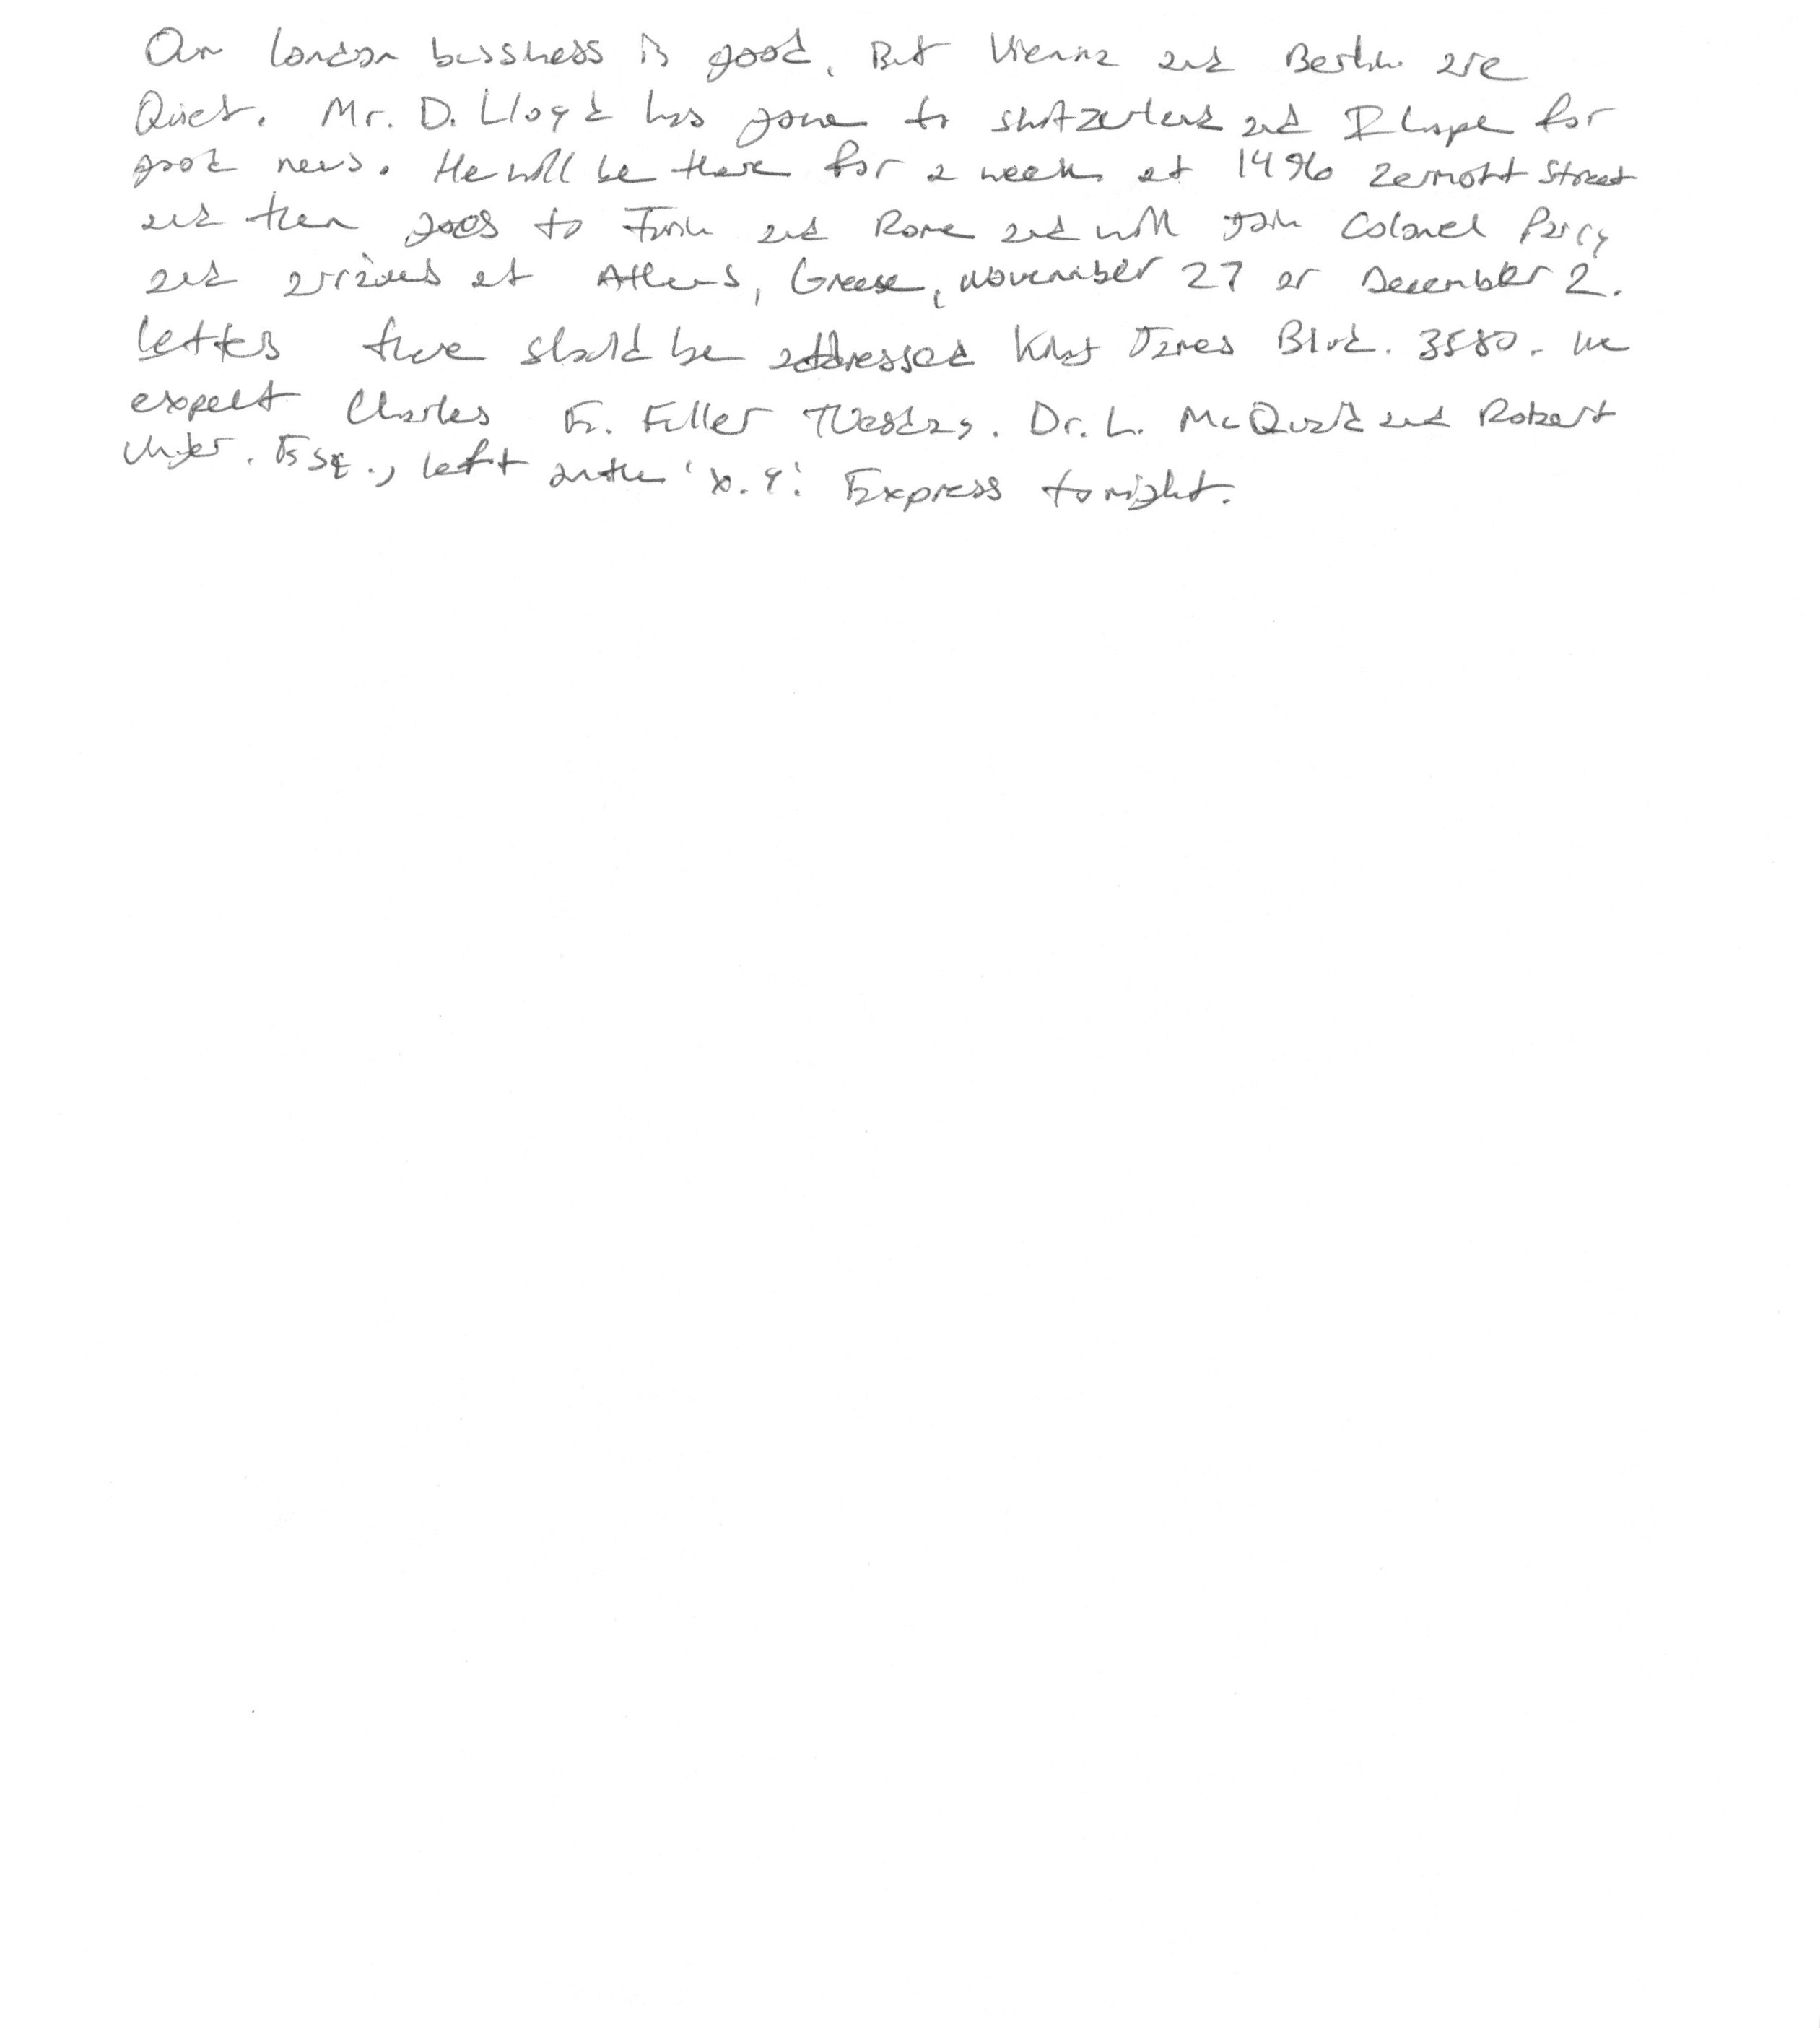 Our London bussness is good. But Vienna and Berlin are
Quiet. Mr. D. Lloyd has gone to switzerland and I hope for
good news. He will be there for a week at 1496 Zermott Street
and then goes to Turin and Rome and will join Colonel Parcy
and arrives at Athens, Greese, November 27 or December 2.
Letters there should be addressed King James Blvd. 3580. We
expect Charles E. Fuller Tuesday. Dr. L. McQuaid and Robert
Unger. Esq., left on the 'X.Y.' Express tonight.